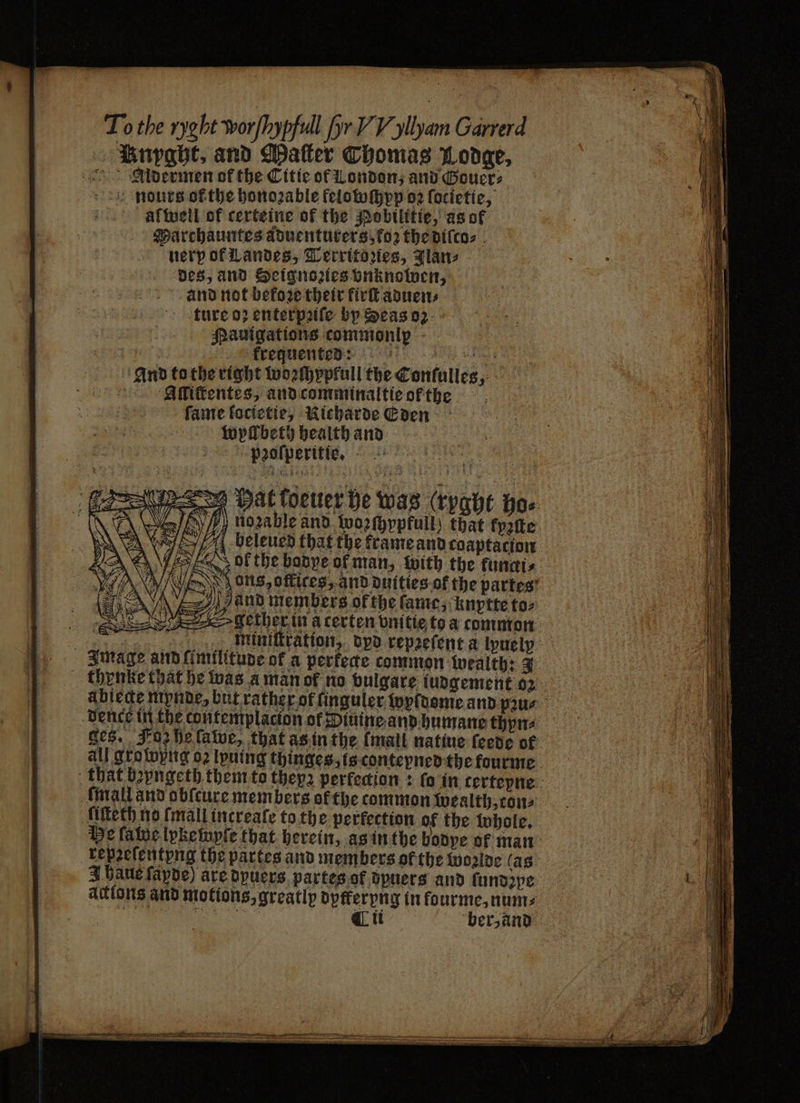 To the ryght worſhypfull ſyr VVyllyam Garrerd
Knyght, and Maſter Thomas Lodge,
Aldermen of the Citie of London, and Gouer⸗
nours of the honorable felowſhyp or ſocietie,
aſwell of certeine of the Nobilitie, as of
Marchauntes aduenturers, for the diſco⸗
uery of Landes, Territories, Ilan⸗
des, and Seignories vnknowen,
and not before their firſt aduen⸗
ture or enterpriſe by Seas or
Nauigations commonly
frequented:
And to the right worſhypfull the Conſulles,
Aſſiſtentes, and comminaltie of the
ſame ſocietie, Richarde Eden
wyſſheth health and
proſperitie.
What ſoeuer he was (ryght ho⸗
norable and worſhypfull) that fyrſte
beleued that the frame and coaptacion
of the bodye of man, with the functi⸗
ons, offices, and duities of the partes
and members of the ſame, knytte to⸗
gether in a certen vnitie to a common
miniſtration, dyd repreſent a lyuely
Image and ſimilitude of a perfecte common wealth: I
thynke that he was a man of no vulgare iudgement or
abiecte mynde, but rather of ſinguler wyſdome and pru⸗
dence in the contemplacion of Diuine and humane thyn⸗
ges. For he ſawe, that as in the ſmall natiue ſeede of
all growyng or lyuing thinges, is conteyned the fourme
that bryngeth them to theyr perfection : ſo in certeyne
ſmall and obſcure members of the common wealth, con⸗
ſiſteth no ſmall increaſe to the perfection of the whole.
He ſawe lykewyſe that herein, as in the bodye of man
repreſentyng the partes and members of the worlde (as
I haue ſayde) are dyuers partes of dyuers and ſundrye
actions and motions, greatly dyfferyng in fourme, num⸗
C ii ber, and